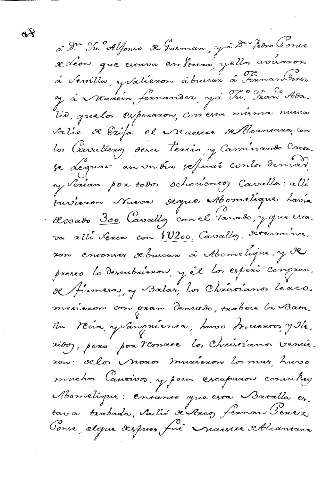 á Dn. Juº Alfonso de Guzman, y á Dn. Pedro Ponce
de Leon que estava en Xerez y ellos avisaron
á Sevilla, y salieron á buscar á Fernan Perez
y á Martin Fernandez, y á
que los esperaron, con esta misma nueva
salio de Ecija el Maestre de Alcantara, con
los Cavalleros de su y caminando
se llegar un dia
y serian por todos ochocientos Cavallos: alli
tuvieron Nueva de que Abomelique, havia
dejado 300 Cavallos con el Ganado, y que esta-
va alli serca con 1U200 Cavallos, determina-
ron entonces de buscar á Abomelique, y de
presto le descubrieron, y él los esperó con gran
de Firmeza, y Valor, los Christianos le aco-
metieron con gran Denuedo, trabose la Bata-
lla Recia, y Sangrienta, huvo Muertos, y He-
ridos, pero por los Christianos vencie-
ron: de los Moros murieron los mas, huvo
muchos Cautivos, y pocos escaparon con
Abomelique: entanto que esta Batalla es-
tava trabada, salió de Arcos Fernan Perez
Ponce, el que despues fué Maestre de Alcantara